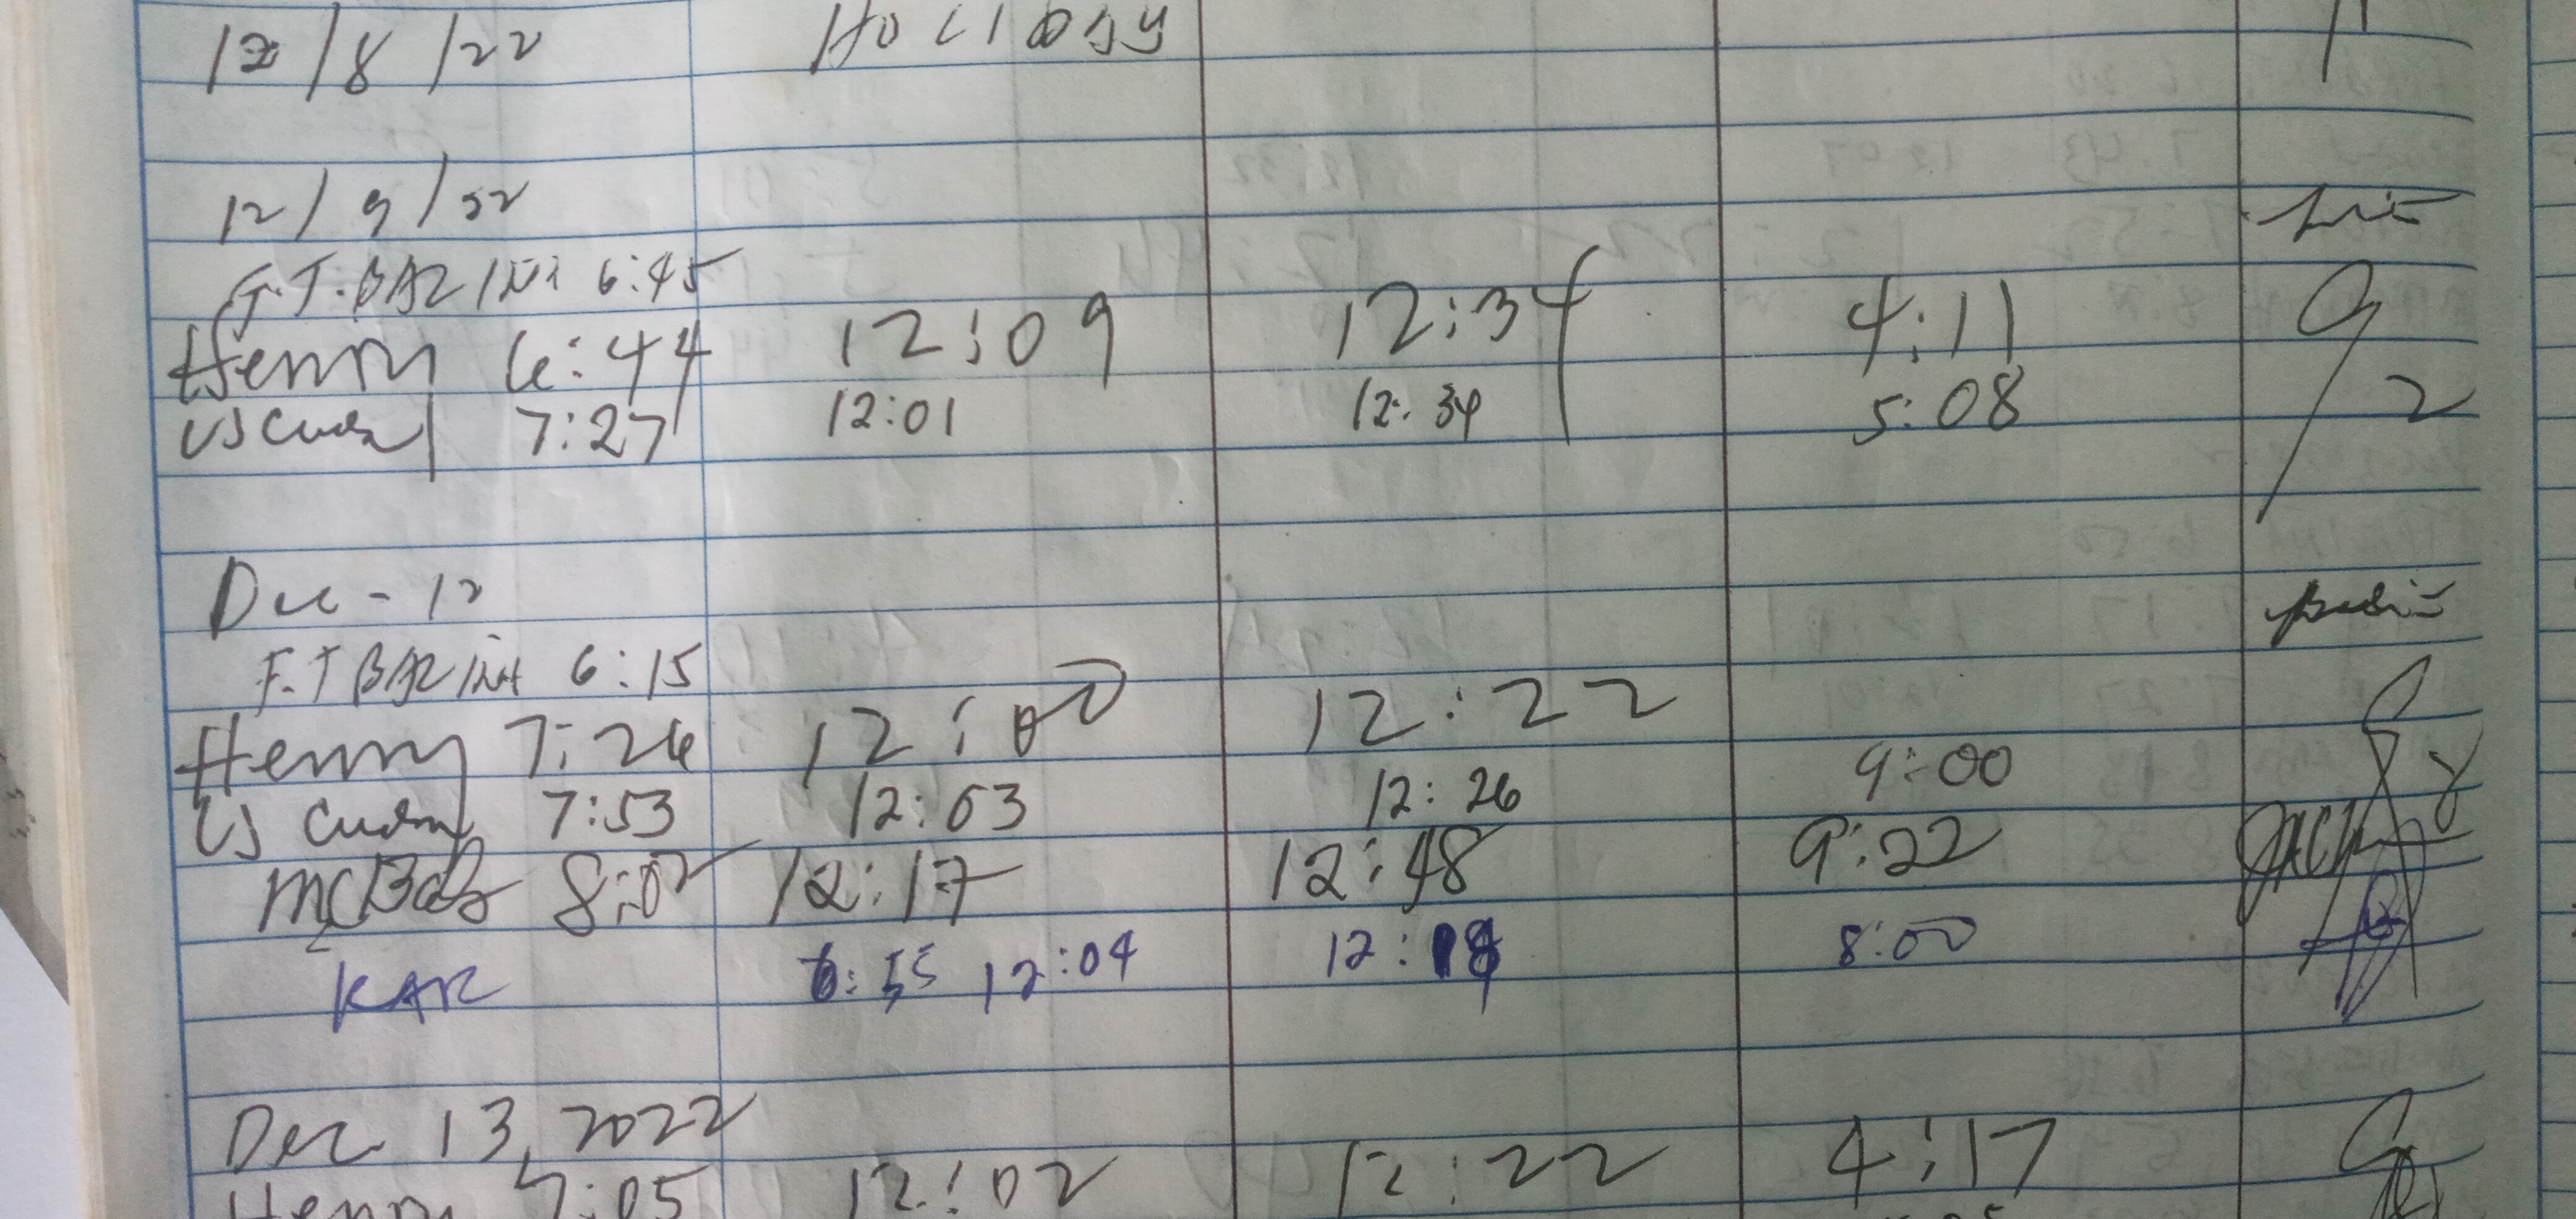 12/8/22 Holiday
12/9/22
F.T. BAZ 6:45
Henry 6:44 12:09 12:34 4:11
7:27 12:01 12:34 5:08
Dec - 12
F.T BAZ 6:15
Henry 7:26 12:00 12:22
7:53 12:03 12:26 9:00
8:02 12:17 12:48 9:22
KAR 6:55 12:04 12: 8:00
Dec 13, 2022
Henry 7:05 12:02 12:22 4:17